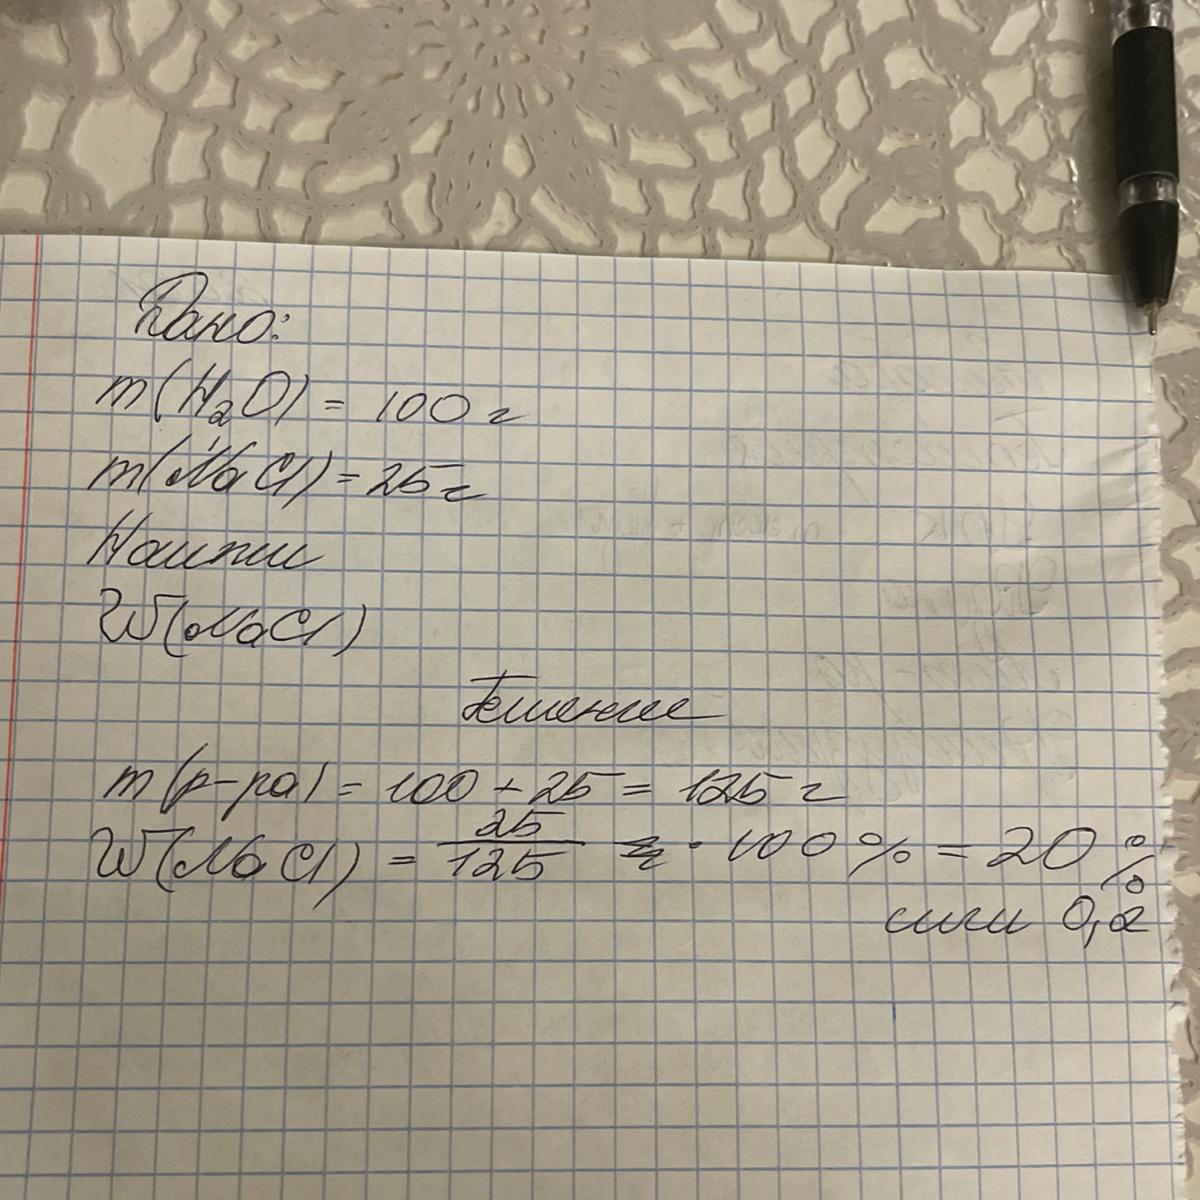 Дано:
m(H₂O) = 100 г
m(NaCl) = 25 г
Найти
W(NaCl)
Решение
m(р-ра) = 100 + 25 = 125 г
W(NaCl) = 25/125 · 100 % = 20 %
или 0,2